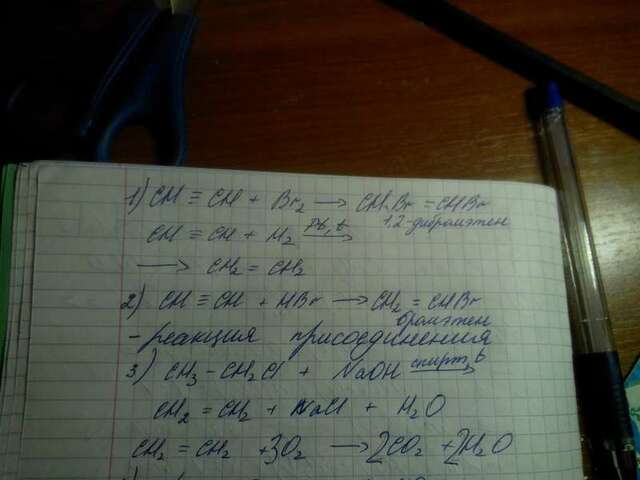 1) CH ≡ CH + Br₂ → CHBr = CHBr
1,2-дибромэтен
CH ≡ CH + H₂ Pt, t →
→ CH₂ = CH₂
2) CH ≡ CH + HBr → CH₂ = CHBr
бромэтен
- реакция присоединения
3) CH₃ - CH₂Cl + NaOH спирт, t →
CH₂ = CH₂ + NaCl + H₂O
CH₂ = CH₂ + 3O₂ → 2CO₂ + 2H₂O